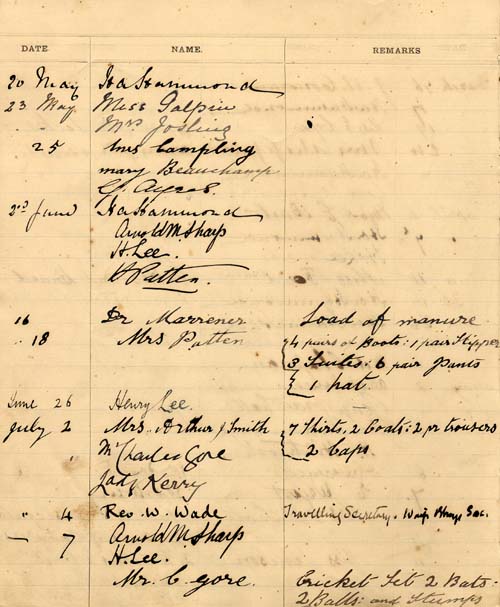 DATE NAME. REMARKS
20 May Ha Hammond
23 May Miss Galpin
" Mrs Josling
25 Mrs Campling
Mary Beauchamp
G. Ayres.
2nd June Ha Hammond
Arnold M. Sharp
H. Lee.
Patten.
16 Dr Marrener Load of manure
" 18 Mrs Patten 4 pairs of Boots: 1 pair Slipper
3 Suites: 6 pair Pants
1 hat.
June 26 Henry Lee.
July 2 Mrs. Arthur J Smith 7 Shirts, 2 Coats: 2 pr trousers
" Mr Charles Gore 2 Caps.
Lady Kerry
" 4 Rev. W. Wade Travelling Secretary. Waifs
— 7 Arnold M. Sharp
H. Lee.
Mr. C. gore. Cricket Set 2 Bats.
2 Balls: and Stumps